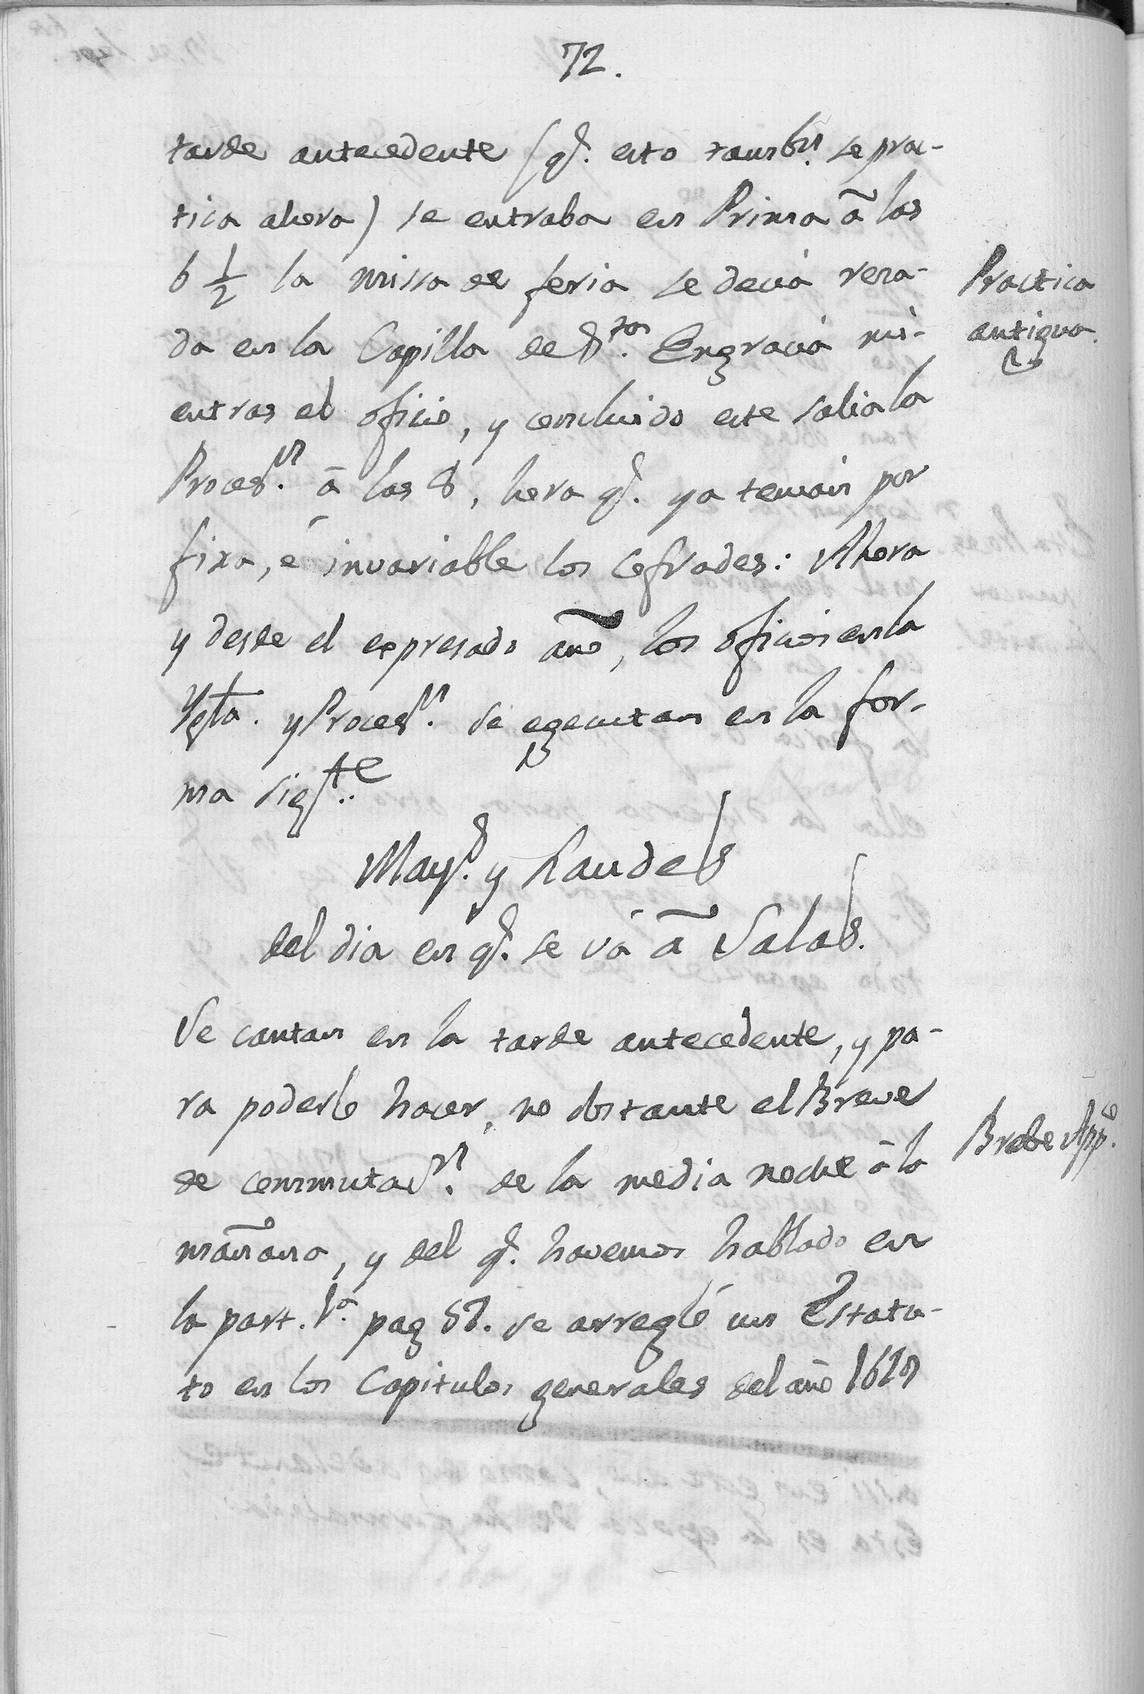 72.
tarde antecedente (q.e esto tambn. se prac-
tica ahora) se entraba en Prima â las
6 1/2 la missa de feria se decia reza-
da en la Capilla de Sta. Engracia mi-
entras el oficio, y concluido este salia la
Procesn. â las 8, hora q.e ya tenian por
fixa, é invariable los Cofrades: Ahora
y desde el expresado año, los oficios en la
Ygla. y Procesn. se egecutan en la for-
ma sigte.
Mays. y Laudes
del dia en q.e se vá â Salas.
Se cantan en la tarde antecedente, y pa-
ra poderlo hacer, no obstante el Breve
de conmutacn. de la media noche â la
mañana, y del q.e havemos hablado en
la part. 1a. pag se arregló un Estatu-
to en los Capitulos generales del año
Practica
antigua.
Brebe Appo.